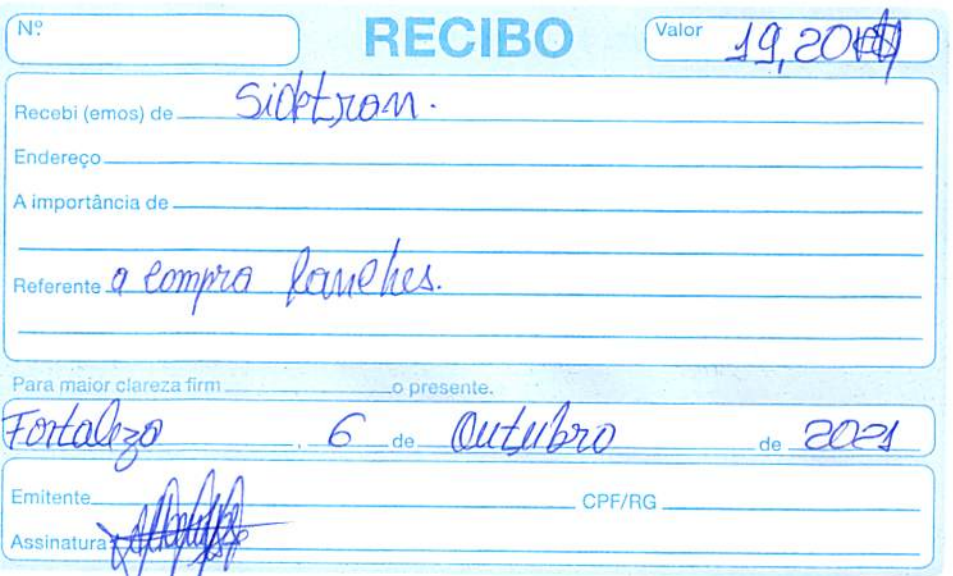 Nº RECIBO Valor 19,20
Recebi (emos) de Sidetran.
Endereço
A importância de
Referente a compra lanches.
Para maior clareza firm o presente.
Fortaleza, 6 de Outubro de 2021
Emitente CPF/RG
Assinatura